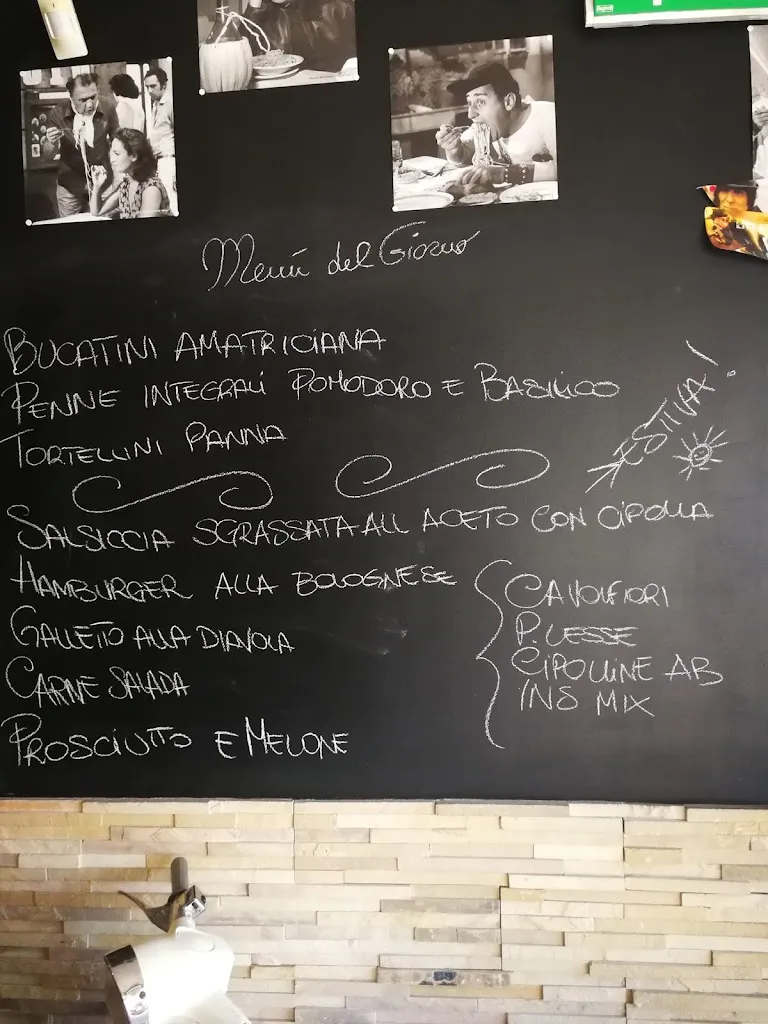 Menù del Giorno
BUCATINI AMATRICIANA
PENNE INTEGRALI POMODORO E BASILICO
TORTELLINI PANNA
ESTIVA!
SALSICCIA SGRASSATA ALL ACETO CON CIPOLLA
HAMBURGER ALLA BOLOGNESE
GALLETTO ALLA DIAVOLA
CARNE SALADA
PROSCIUTTO E MELONE
CAVOLFIORI
P. LESSE
CIPOLLINE AB
INS MIX